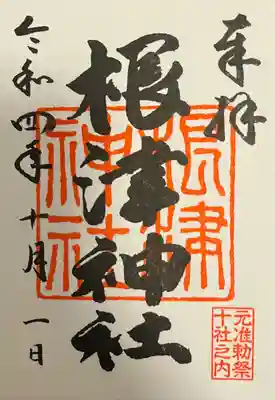 奉拝
根津神社
根津神社
元准勅祭
十社之内
令和四年十月一日